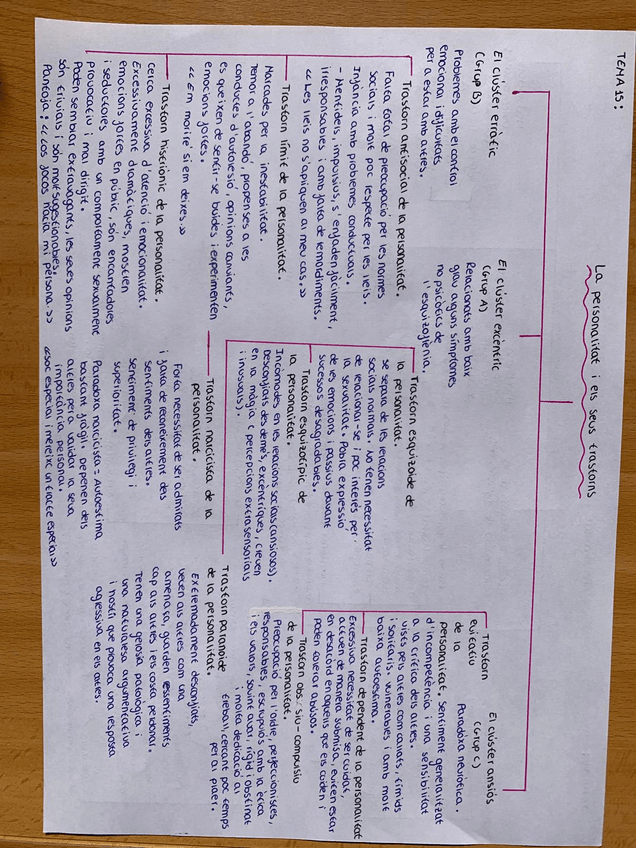 TEMA 15:
La personalitat i els seus trastorns
El clúster erràtic
(Grup B)
Problemes amb el control
emocional i dificultats
per a estar amb altres.
Trastorn antisocial de la personalitat.
Falta total de preocupació per les normes
socials i molt poc respecte per les lleis.
Infància amb problemes conductuals.
- Mentiders, impulsius, s'enfaden fàcilment,
irresponsables i amb falta de remordiments.
<< Les lleis no s'apliquen al meu cas. >>
Trastorn límit de la personalitat.
Marcades per la inestabilitat.
Temor a l'abandó, propenses a les
conductes d'autolesió, opinions canviants,
es queixen de sentir-se buides i experimenten
emocions fortes.
<< Em moriré si em deixes. >>
Trastorn histriònic de la personalitat.
Cerca excessiva d'atenció i emocionalitat.
Excessivament dramàtiques, mostren
emocions fortes en públic, són encantadores
i seductores amb un comportament sexualment
provocatiu i mal dirigit.
Poden semblar extravagants, les seues opinions
són trivials i són molt suggestionables.
Pantoja: << Los focos hacia mi persona. >>
El clúster excèntric
(Grup A)
Relacionats amb baix
grau alguns símptomes
no psicòtics de
l'esquizofrènia.
Trastorn esquizoide de
la personalitat.
se separa de les relacions
socials normals. No tenen necessitat
de relacionar-se i poc interés per
la sexualitat. Pobra expressió
de les emocions i passius davant
sucessos desagradables.
Trastorn esquizotípic de
la personalitat.
Incòmodes en les relacions socials (ansiosos).
Desconfiats dels demés, excèntriques, creuen
en la màgia (percepcions extrasensorials
i inusuals).
Trastorn narcicista de la
personalitat.
Forta necessitat de ser admirats
i falta de reconeixement dels
sentiments dels altres.
sentiment de privilegi i
superioritat.
Paradoxa narcicista = Autoestima
bastant fràgil. Depenen dels
altres per a validar la seva
importància personal.
<<soc especial i mereixc un tracte especial>>
Trastorn paranoide
de la personalitat.
Extremadament desconfiats,
veuen als altres com una
amenaça, guarden ressentiments
cap als altres i els costa perdonar.
Tenen una gelosia patològica i
una naturalesa argumentativa
i hostil que provoca una resposta
agressiva en els altres.
El clúster ansiós
(Grup C)
Trastorn
evitatiu
de la
personalitat.
Paradoxa neuròtica.
sentiment generalitzat
d'incompetència i una sensibilitat
a la crítica dels altres.
vistes pels altres com callats, tímids
i solitaris. vulnerables i amb molt
baixa autoestima.
Trastorn dependent de la personalitat
Excessiva necessitat de ser cuidat,
actuen de manera submisa, eviten estar
en desacord en aquells que els cuiden i
poden tolerar abusos.
Trastorn obsessiu-compulsiu
de la personalitat.
Preocupació per l'ordre, perfeccionistes,
responsables, escrupulós amb la ètica
i els valors, sovint avar, rígid i obstinat
i molta dedicació al
treball, deixant poc temps
per al plaer.